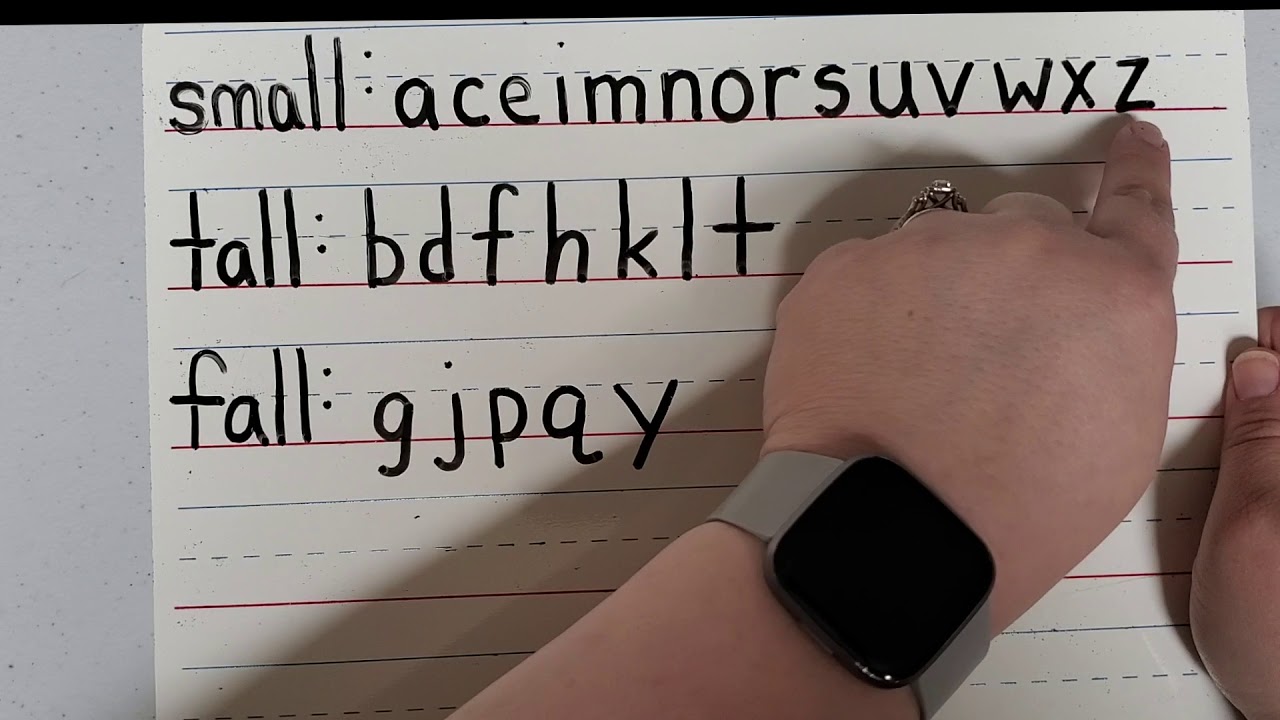 small: a c e i m n o r s u v w x z
tall: b d f h k l t
fall: g j p q y